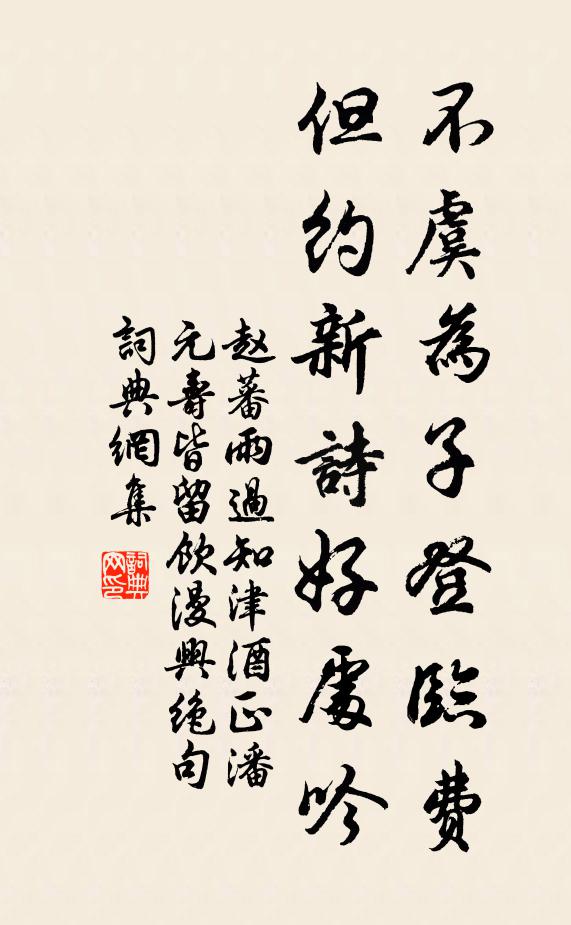 不虞為子登臨費
但約新詩好處吟
赵蕃雨過知津酒正潘
元壽皆留飲漫興絕句
詞典網集
詞典
网印